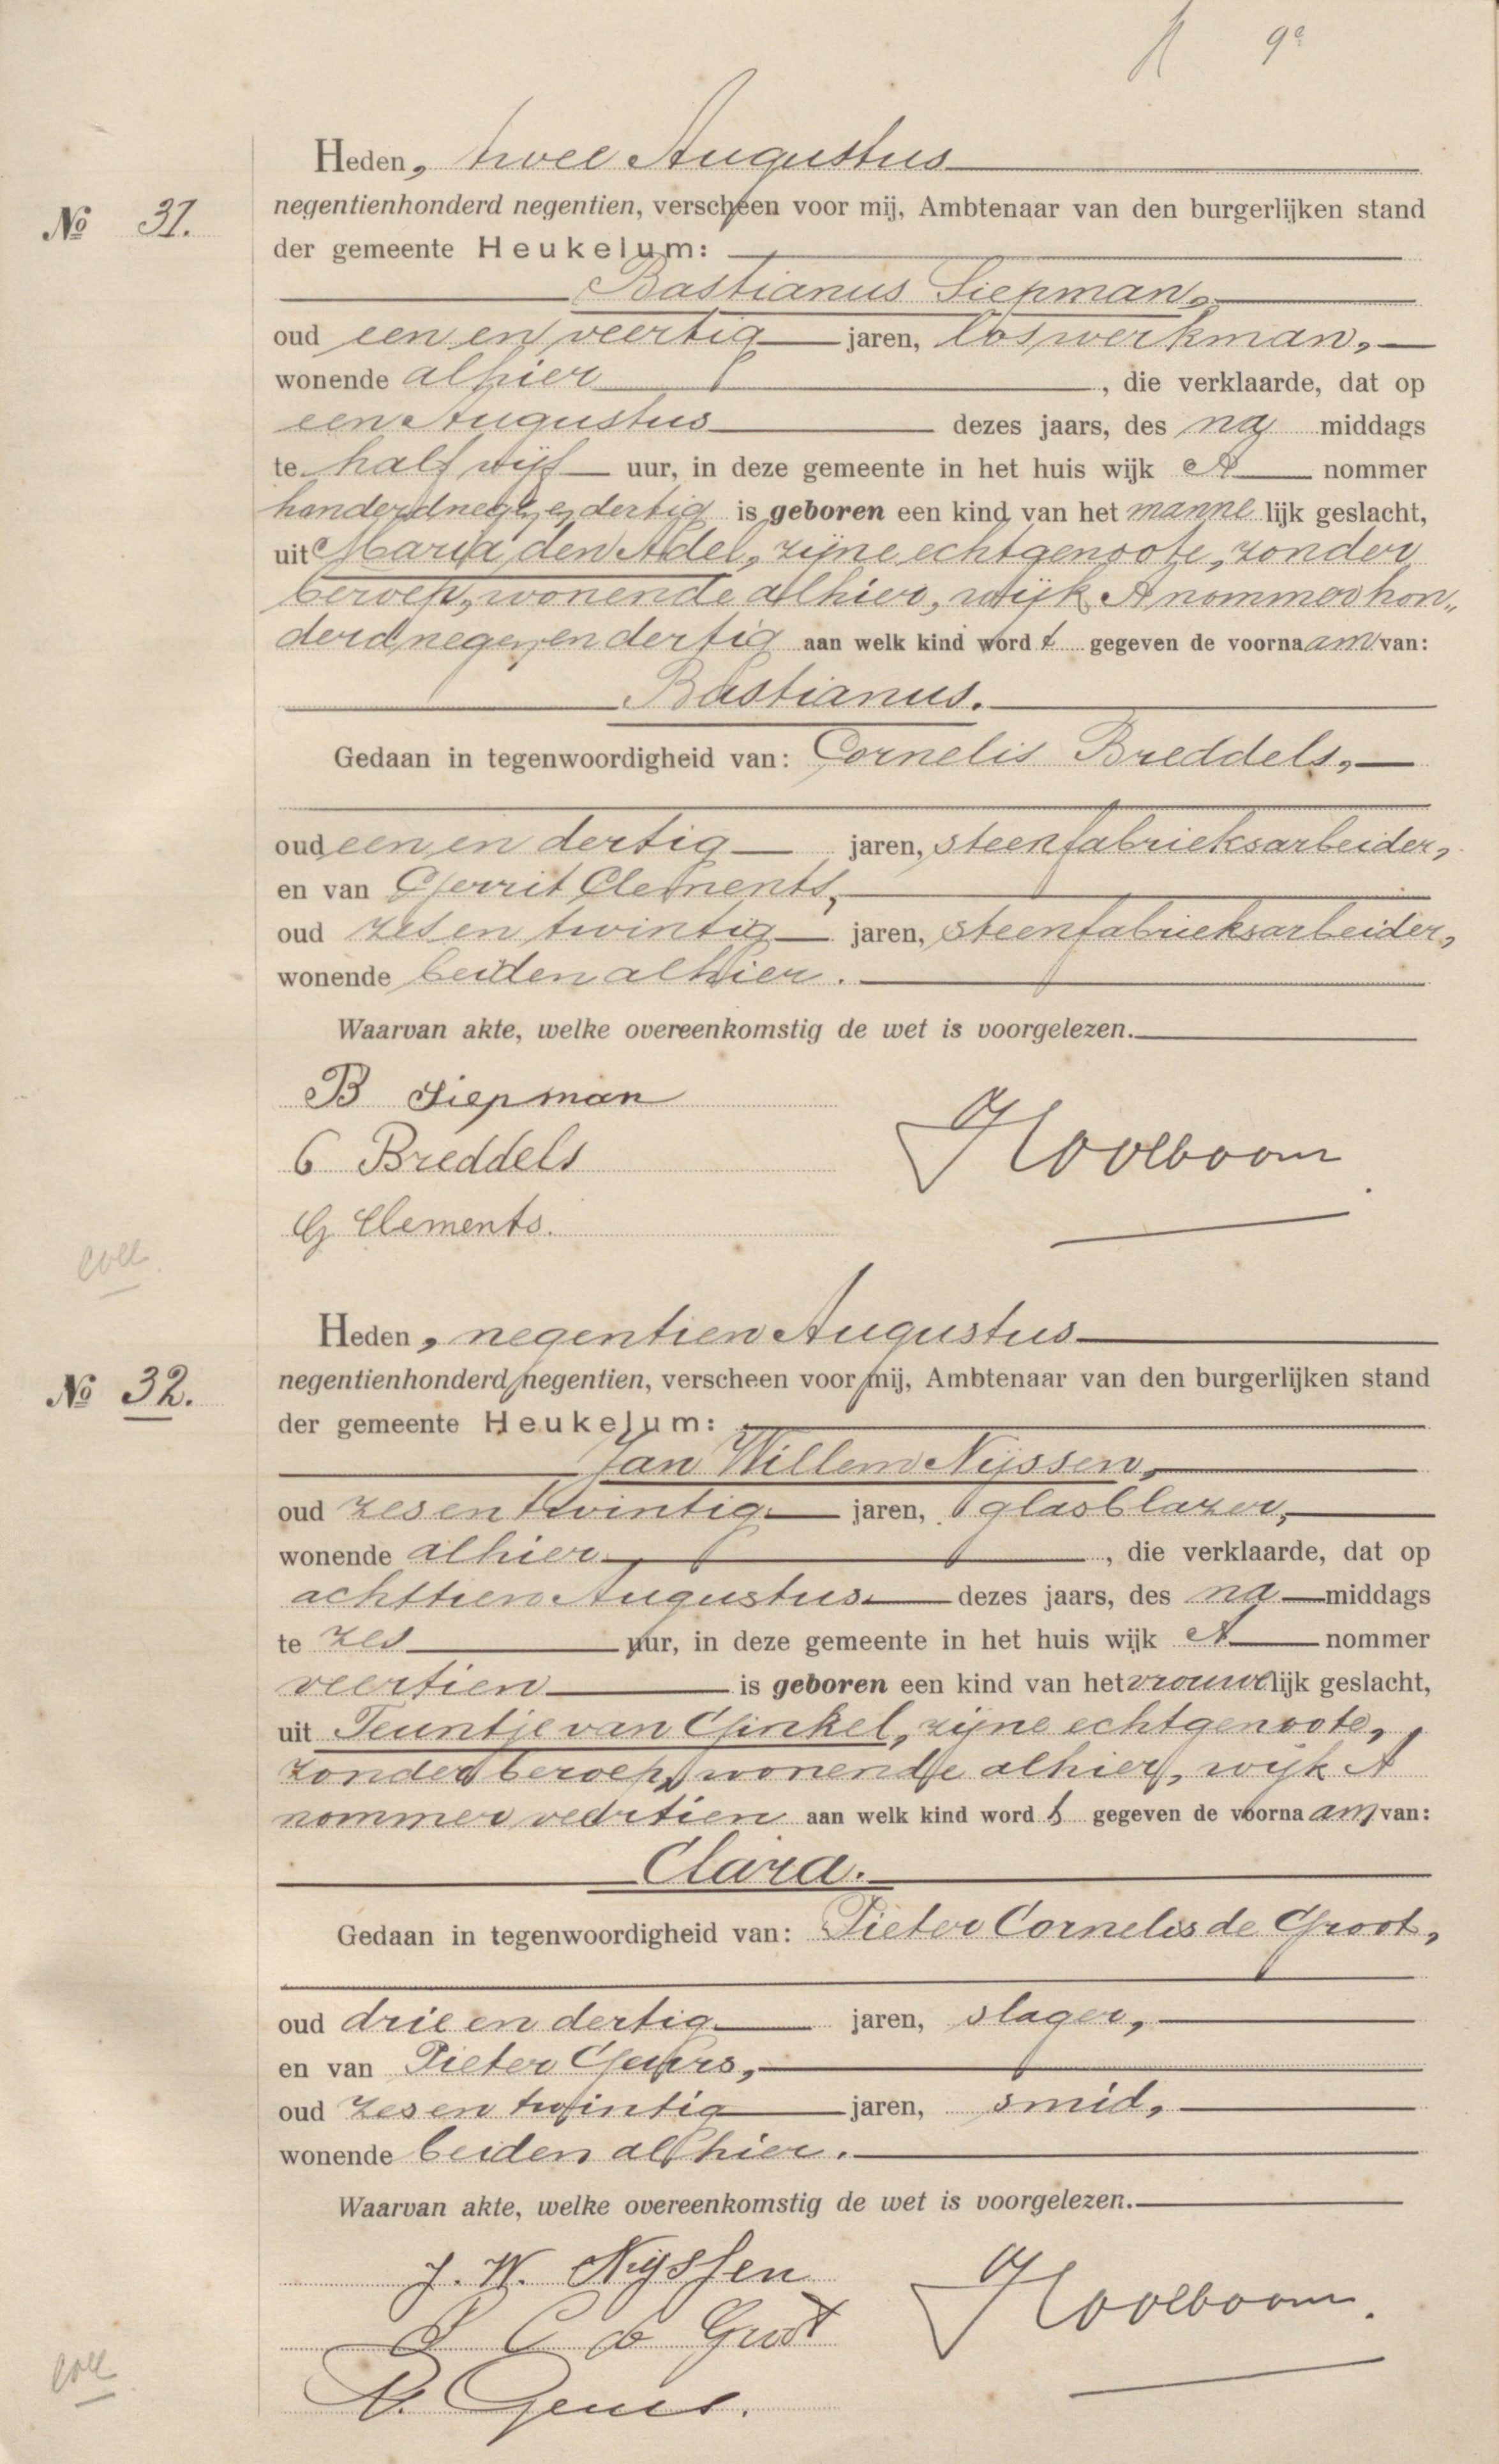 9e
Heden, twee Augustus
No 31.
negentienhonderd negentien, verscheen voor mij, Ambtenaar van den burgerlijken stand
der gemeente Heukelum:
Bastianus Siepman,
oud een en veertig jaren, los werkman,
wonende alhier, die verklaarde, dat op
een Augustus dezes jaars, des na middags
te half vijf uur, in deze gemeente in het huis wijk A nommer
honderdnegen en dertig is geboren een kind van het mannelijk geslacht,
uit Maria den Adel, zijne echtgenoote, zonder
beroep, wonende alhier, wijk A nommer hon„
derd negen en dertig aan welk kind wordt gegeven de voornaam van:
Bastianus.
Gedaan in tegenwoordigheid van: Cornelis Breddels,
oud een en dertig jaren, steenfabrieksarbeider,
en van Gerrit Clements,
oud zes en twintig jaren, steenfabrieksarbeider,
wonende beiden alhier.
Waarvan akte, welke overeenkomstig de wet is voorgelezen.
B Siepman
C Breddels
Hoolboom
G Clements.
coll.
Heden, negentien Augustus
No 32.
negentienhonderd negentien, verscheen voor mij, Ambtenaar van den burgerlijken stand
der gemeente Heukelum:
Jan Willem Nijssen,
oud zes en twintig jaren, glasblazer,
wonende alhier, die verklaarde, dat op
achttien Augustus dezes jaars, des na middags
te zes uur, in deze gemeente in het huis wijk A nommer
veertien is geboren een kind van het vrouwelijk geslacht,
uit Teuntje van Ginkel, zijne echtgenoote,
zonder beroep, wonende alhier, wijk A
nommer veertien aan welk kind wordt gegeven de voornaam van:
Clara.
Gedaan in tegenwoordigheid van: Pieter Cornelis de Groot,
oud drie en dertig jaren, slager,
en van Pieter Geurs,
oud zes en twintig jaren, smid,
wonende beiden alhier.
Waarvan akte, welke overeenkomstig de wet is voorgelezen.
J. W. Nijssen
Hoolboom.
P C de Groot
P. Geurs.
coll